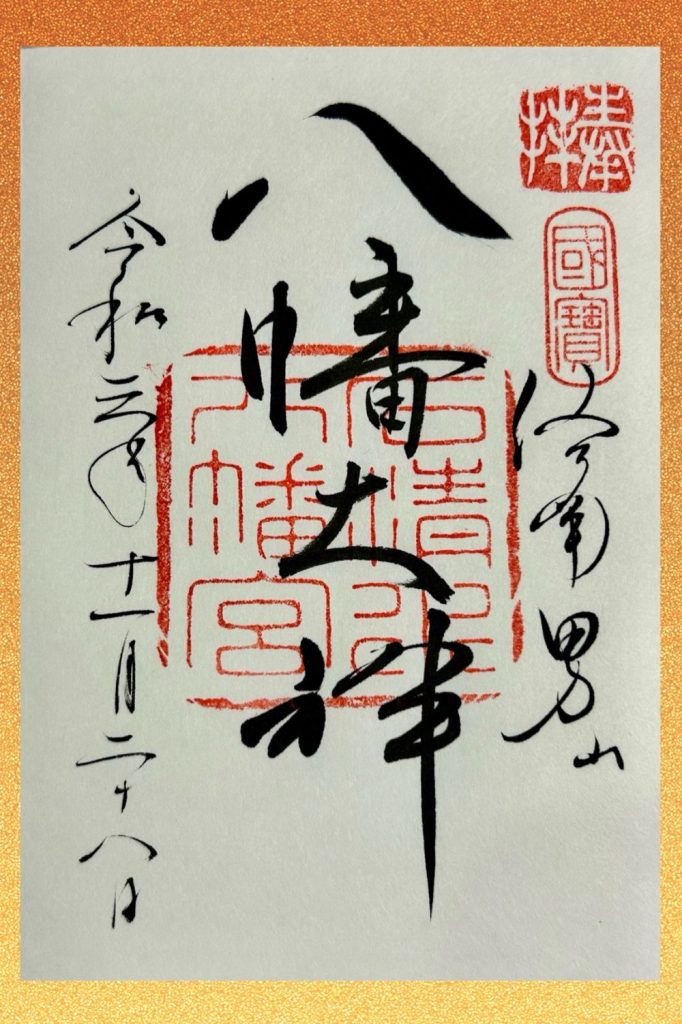 奉拝
國寶
洛南男山
八幡大神
石清水
八幡宮
令和三年十一月二十八日